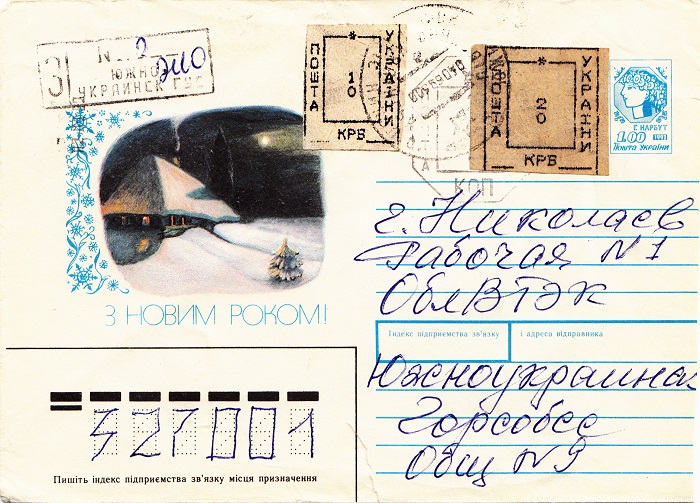 З
N 2
ЮЖНО
УКРАИНСК ГУС
ПОШТА
УКРАЇНИ
*
10
КРБ
ПОШТА
УКРАЇНИ
*
20
КРБ
Г. НАРБУТ
1.00 1992
Пошта України
КОП
З НОВИМ РОКОМ!
г. Николаев
Рабочая N 1
ОблВТЭК
Індекс підприємства зв'язку
і адреса відправника
Южноукраинск
Горсобес
Общ N 9
327001
Пишіть індекс підприємства зв'язку місця призначення